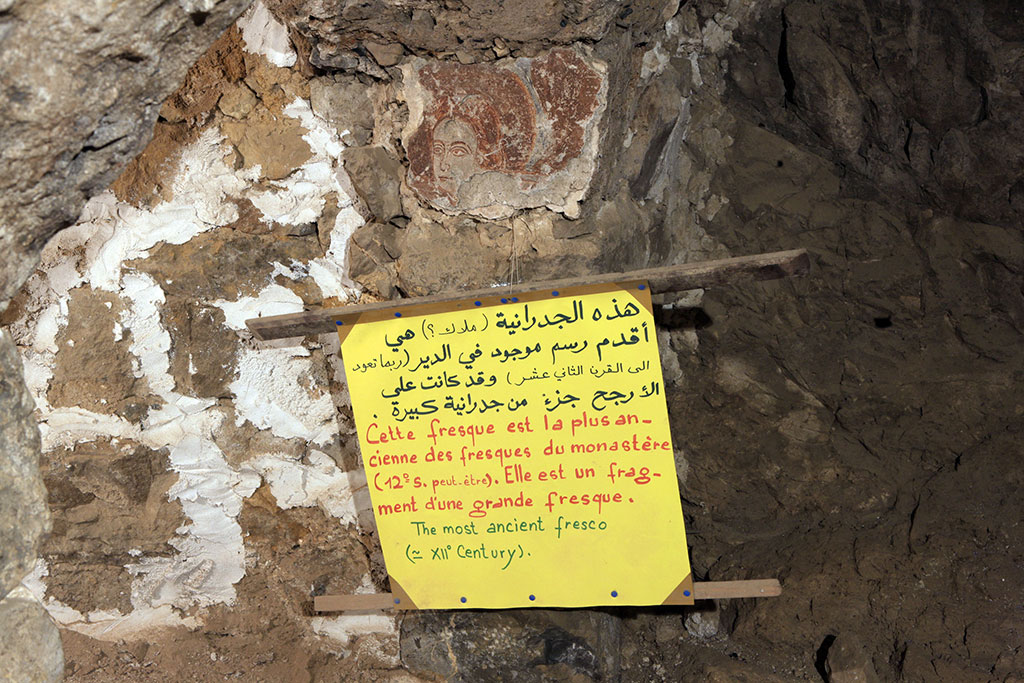 هذه الجدرانية (ملاك؟) هي
أقدم رسم موجود في الدير (ربما تعود
الى القرن الثاني عشر) وقد كانت علي
الأرجح جزء من جدرانية كبيرة.
Cette fresque est la plus an-
cienne des fresques du monastère
(12e s. peut-être). Elle est un frag-
ment d'une grande fresque.
The most ancient fresco
(≃ XII° Century).